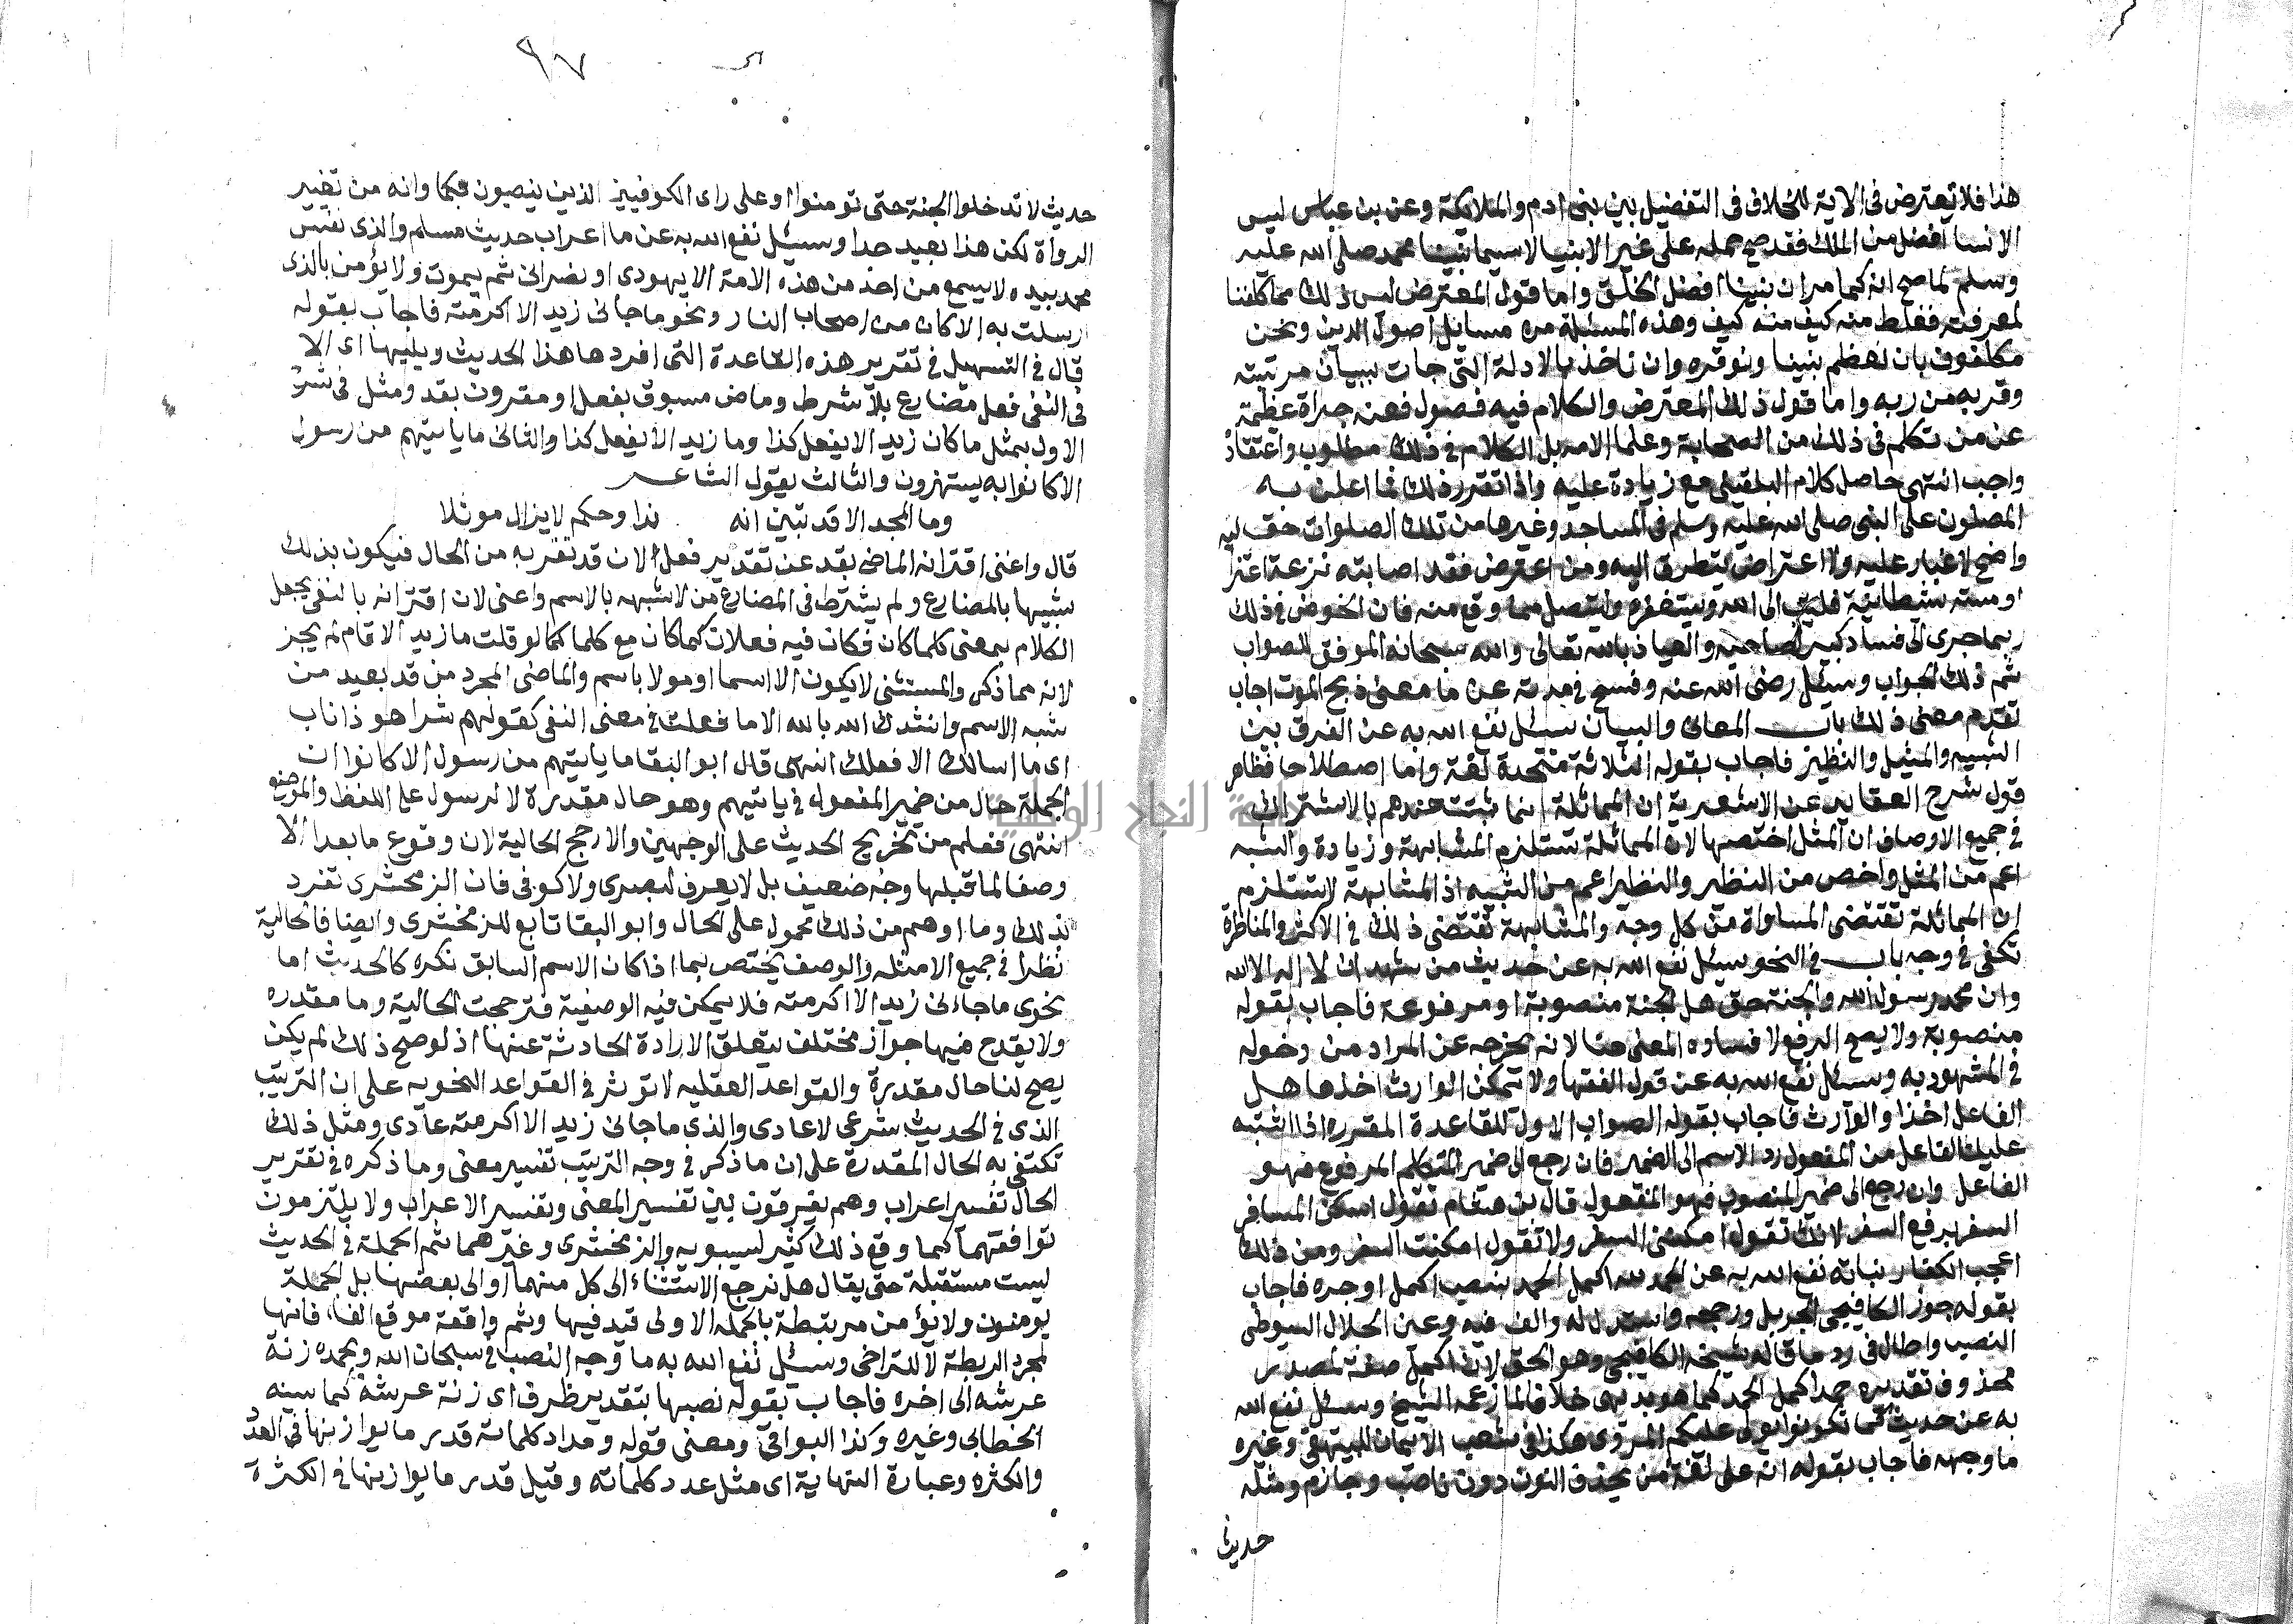 هذا فلا تعترض فى الاية للخلاف فى التفضيل بين بنى ادم والملايكة وعن بن عباس ليس
الانسا افضل من الملك فقد صح حمله على غير الانبيا لاسيما نبينا محمد صلى الله عليه
وسلم لما صح انه كما مر ان نبينا افضل الخلق واما قول المعترض ليس ذلك مما كلفنا
لمعرفته فغلط منه كيف منه كيف وهذه المسئلة من مسايل اصول الدين ونحن
مكلفون بان نعظم نبينا ونوقره وان ناخذ بالادلة التى جات ببيان مرتبته
وقربه من ربه واما قول ذلك المعترض والكلام فيه فضول فعنه جراة عظيمة
عن من تكلم فى ذلك من الصحابة وعلما الامه بل الكلام فى ذلك مطلوب واعتقاد
واجب انتهى حاصل كلام البلقينى مع زيادة عليه واذا تقرر ذلك فما اعلن به
المصلون على النبى صلى الله عليه وسلم فى المساجد وغيرها من تلك الصلوات حق ليه
واضح لا غبار عليه ولا اعتراض يتطرق اليه ومن اعترض فقد اصابته نزعة اعتزا
او مسته شيطانية فليتب الى الله ويستغفره وليتنصل مما وقع منه فان الخوض فى ذلك
ربما جرى الى فساد كبير لصاحبه والعياذ بالله تعالى والله سبحانه الموفق للصواب
ثم ذلك الجواب وسئل رضى الله عنه وفسح فى مدته عن ما معنى ذبح الموت اجاب
تقدم معنى ذلك باب المعانى والبيان سئل نفع الله به عن الفرق بين
الشبيه والمثيل والنظير فاجاب بقوله الثلاثة متحدة لغة واما اصطلاحا فظاهر
قول شرح العقايد عن الاشعرية ان المماثلة انما تثبت عندهم بالاشتراك
فى جميع الاوصاف ان المثل اختصها لان المماثلة تستلزم المشابهة وزيادة والشبه
اعم من المثل واخص من النظير والنظير اعم من الشبيه اذ المشابهة لا تستلزم
ان المماثلة تقتضى المساواة من كل وجه والمشابهة تقتضى ذلك فى الاكثر والمناظرة
تكفى فى وجه باب فى النحو سئل نفع الله به عن حديث من شهد ان لا اله الا الله
وان محمد رسول الله والجنة حق هل الجنة منصوبة او مرفوعة فاجاب بقوله
منصوبة ولا يصح الرفع لافساده المعنى هنا لانه يخرجه عن المراد من دخوله
فى المشهود به وسئل نفع الله به عن قول الفقها ولا تمكن الوارث اخذها هل
الفاعل اخذا والوارث فاجاب بقوله الصواب الاول للقاعدة المقرره اذا اشتبه
عليك الفاعل من المفعول رد الاسم الى الضمير فان رجع الى ضمير المتكلم المرفوع فهو
الفاعل وان رجع الى ضمير المنصوب فهو المفعول قال بن هشام تقول امكن المسافر
السفر برفع السفر لانك تقول امكننى السفر ولا تقول امكنت السفر ومن ذلك
اعجب الكفار نباته نفع الله به عن الحمد لله اكمل الحمد بنصب اكمل او جره فاجاب
بقوله جوز الكافيجى الجر بل ورجحه واستدل له والف فيه وعين الجلال السيوطى
النصب واطال فى رد ما قاله شيخه الكافيجى وهو الحق لان اكمل صفة لمصدر
محذوف تقديره حمدا كمل الحمد كما هو بديهى خلافا لما زعمه الشيخ وسئل نفع الله
به عن حديث كما تكونوا يولى عليكم المروى هكذا فى شعب الايمان للبيهقى وغيره
ما وجهه فاجاب بقوله انه على لغة من يحذف النون دون ناصب وجازم ومثله
حديث
٩٧
حديث لا تدخلوا الجنة حتى تومنوا او على راى الكوفيين الذين ينصبون بكما وانه من تغيير
الرواة لكن هذا بعيد جدا وسئل نفع الله به عن ما اعراب حديث مسلم والذى نفس
محمد بيده لا يسمع من احد من هذه الامة الا يهودى او نصرانى ثم يموت ولا يؤمن بالذى
ارسلت به الا كان من اصحاب النار ونحو ما جانى زيد الا اكرمته فاجاب بقوله
قال فى التسهيل فى تقرير هذه القاعدة التى افردها هذا الحديث ويليها اى الا
فى النفى فعل مضارع بلا شرط وماض مسبوق بفعل او مقرون بقد ومثل فى شرح
الاول بمثل ما كان زيد الا يفعل كذا وما زيد الا يفعل كذا والثانى ما ياتيهم من رسول
الا كانوا به يستهزون والثالث بقول الشاعر
وما المجد الا قد تبين انه نداو حكم لا يزال موثلا
قال واغنى اقترانه الماضى بقد عن تقدير فعل الان قد تقربه من الحال فيكون بذلك
شبيها بالمضارع ولم يشترط فى المضارع من لا شبهه بالاسم واغنى لان اقترانه بالنفى يجعل
الكلام بمعنى كلما كان فكان فيه فعلان كما كان مع كلما كما لو قلت ما زيد الا قام لم يجز
لانه مما ذكر والمستثنى لا يكون الا اسما او مولا باسم والماضى المجرد من قد بعيد من
شبه الاسم وانشدك الله بالله الا ما فعلت فى معنى النفى كقولهم شر اهر ذا ناب
اى ما اسالك الا فعلك انتهى قال ابو البقا ما ياتيهم من رسول الا كانوا ان
الجملة حال من ضمير المفعول فى ياتيهم وهو حال مقدرة لا لرسول على اللفظ والموضع
انتهى فعلم من تخريج الحديث على الوجهين والارجح الحالية لان وقوع ما بعد الا
وصفا لما قبلها وجه ضعيف بل لا يعرف لبصرى ولا كوفى فان الزمخشرى تفرد
بذلك وما اوهم من ذلك محمول على الحال وابو البقا تابع للزمخشرى وايضا فالحالية
نظرا فى جميع الامثله والوصف يختص بما اذا كان الاسم السابق نكره كالحديث اما
نحوى ما جاءنى زيد الا اكرمته فلا يمكن فيه الوصفية فترجحت الحالية وما مقدره
ولا يقدح فيها جواز مختلف يتعلق الارادة الحادثة عنها اذ لو صح ذلك لم يكن
يصح لنا حال مقدرة والقواعد العقليه لا توثر فى القواعد النحويه على ان الترتيب
الذى فى الحديث شرعى لا عادى والذى ما جانى زيد الا اكرمته عادى ومثل ذلك
تكتفى به الحال المقدرة على ان ما ذكر فى وجه الترتيب تفسير معنى وما ذكره فى تقرير
الحال تفسير اعراب وهم يفرقون بين تفسير المعنى وتفسير الاعراب ولا يلتزمون
توافقهما كما وقع ذلك كثير لسيبويه والزمخشرى وغيرهما ثم الجملة فى الحديث
ليست مستقبلة حتى يقال هل نرجع الاستثناء الى كل منهما او الى بعضها بل الجملة
يومنون ولا يؤمن مرتبطة بالجمله الاولى قيد فيها وثم واقعة موقع الفاء فانها
لمجرد الربطة لا للتراخى وسئل نفع الله به ما وجه النصب فى سبحان الله وبحمده زنة
عرشه الى اخره فاجاب بقوله نصبها بتقدير ظرف اى زنة عرشه كما بينه
الخطابى وغيره وكذا البواقى ومعنى قوله ومداد كلماته قدر ما يوازنها فى العدد
والكثره وعبارة النهاية اى مثل عدد كلماته وقيل قدر ما يوازنها فى الكثرة